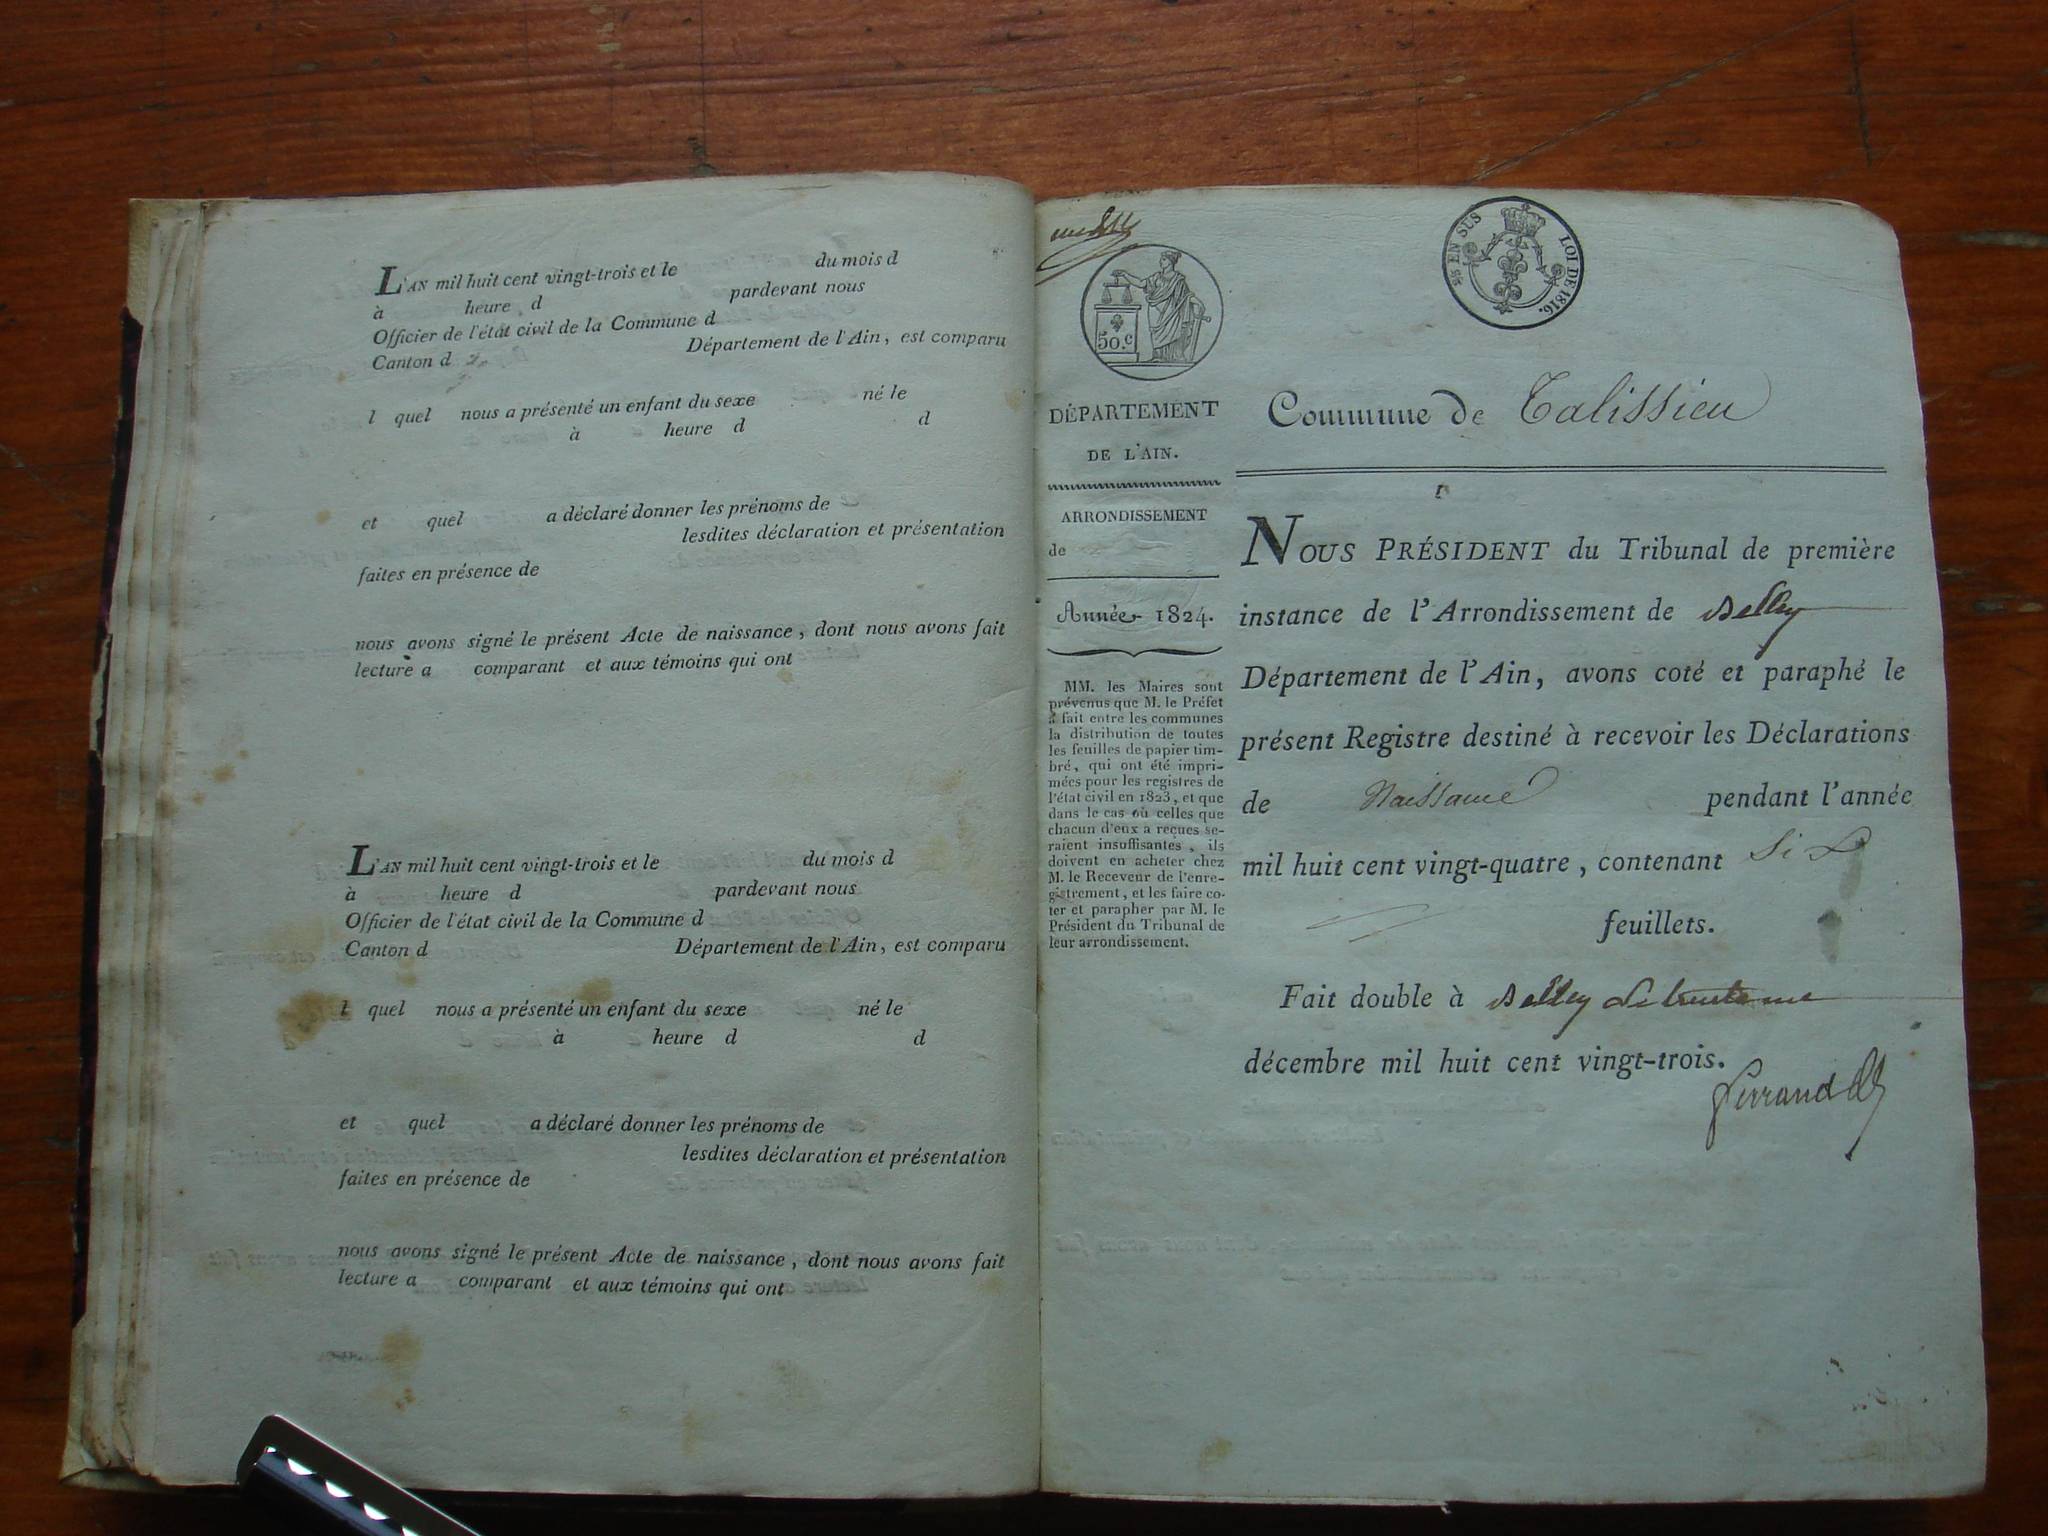 L'AN mil huit cent vingt-trois et le du mois d
à heure d pardevant nous
Officier de l'état civil de la Commune d
Canton d Département de l'Ain, est comparu
l quel nous a présenté un enfant du sexe né le
à heure d d
et quel a déclaré donner les prénoms de
lesdites déclaration et présentation
faites en présence de
nous avons signé le présent Acte de naissance, dont nous avons fait
lecture a comparant et aux témoins qui ont
L'AN mil huit cent vingt-trois et le du mois d
à heure d pardevant nous
Officier de l'état civil de la Commune d
Canton d Département de l'Ain, est comparu
l quel nous a présenté un enfant du sexe né le
à heure d d
et quel a déclaré donner les prénoms de
lesdites déclaration et présentation
faites en présence de
nous avons signé le présent Acte de naissance, dont nous avons fait
lecture a comparant et aux témoins qui ont
50.c
EN SUS LOI DE 1816.
DÉPARTEMENT
DE L'AIN.
ARRONDISSEMENT
de
Année 1824.
MM. les Maires sont
prévenus que M. le Préfet
a fait entre les communes
la distribution de toutes
les feuilles de papier tim-
bré, qui ont été impri-
mées pour les registres de
l'état civil en 1823, et que
dans le cas où celles que
chacun d'eux a reçues se-
raient insuffisantes, ils
doivent en acheter chez
M. le Receveur de l'enre-
gistrement, et les faire co-
ter et parapher par M. le
Président du Tribunal de
leur arrondissement.
Commune de Talissieu
NOUS PRÉSIDENT du Tribunal de première
instance de l'Arrondissement de Belley
Département de l'Ain, avons coté et paraphé le
présent Registre destiné à recevoir les Déclarations
de Naissance pendant l'année
mil huit cent vingt-quatre, contenant Six
feuillets.
Fait double à Belley le trente un
décembre mil huit cent vingt-trois.
Ferrand